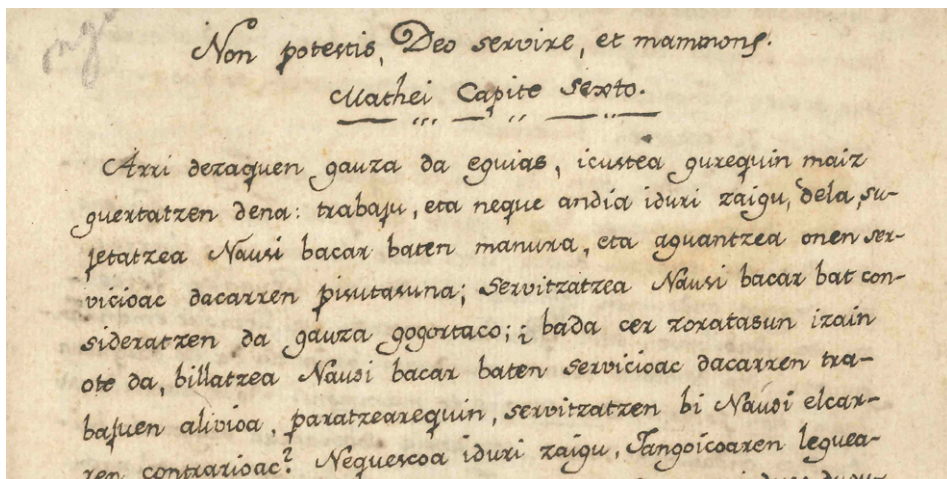 Non potestis, Deo servire, et mammonę.
Mathei Capite Sexto.
Arri dezaquen gauza da eguias, icustea gurequin maiz
guertatzen dena: trabaju, eta neque andia iduri zaigu, dela, su-
jetatzea Nausi bacar baten manura, eta aguantzea onen ser-
vicioac dacarren pisutasuna; Servitzatzea Nausi bacar bat con-
sideratzen da gauza gogortaco; ¿ bada cer zoratasun izain
ote da, billatzea Nausi bacar baten servicioac dacarren tra-
bajuen alivioa, paratzearequin, servitzatzen bi Nausi elcar-
ren contrarioac? Nequescoa iduri zaigu, Jangoicoaren leguea-